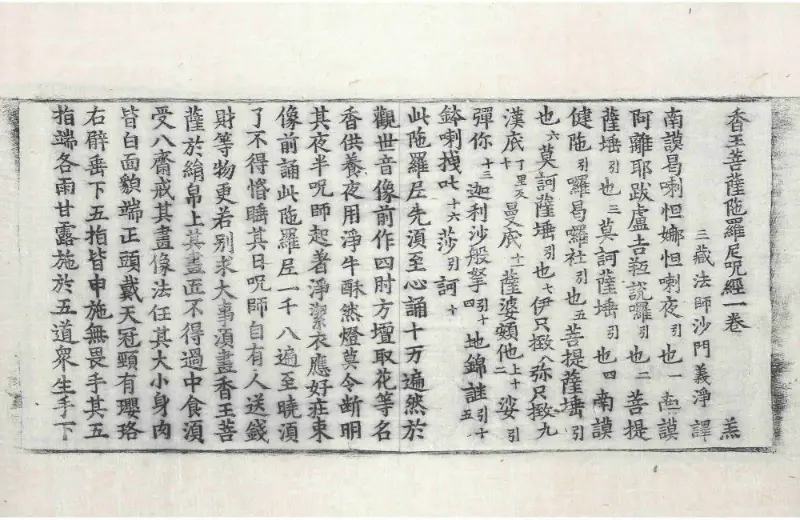 香王菩薩陁羅尼呪經一卷 羔
三藏法師沙門義淨 譯
南謨曷喇怛娜怛喇夜引也一南謨
阿離耶跋盧吉抧說囉引也二菩提
薩埵引也三莫訶薩埵引也四南謨
健陁引囉曷囉社引也五菩提薩埵引
也六莫訶薩埵引也七伊只㨖八弥只㨖九
漢底丁里反十曼底十一薩婆頞他上十二娑引
彈你十三迦利沙般拏引十四地錦誰引十五
鉢喇拽吒十六莎引訶十
此陁羅尼先湏至心誦十万遍然於
觀世音像前作四肘方壇取花等名
香供養夜用淨牛酥然燈莫令断明
其夜半呪師起著淨潔衣應好莊束
像前誦此陁羅尼一千八遍至曉湏
了不得惛睡其日呪師自有人送錢
財等物更若別求大事湏畫香王菩
薩於絹帛上其畫匠不得過中食湏
受八齋戒其畫像法任其大小身肉
皆白面貌端正頭戴天冠頸有瓔珞
右臂垂下五指皆申施無畏手其五
指端各雨甘露施於五道衆生手下